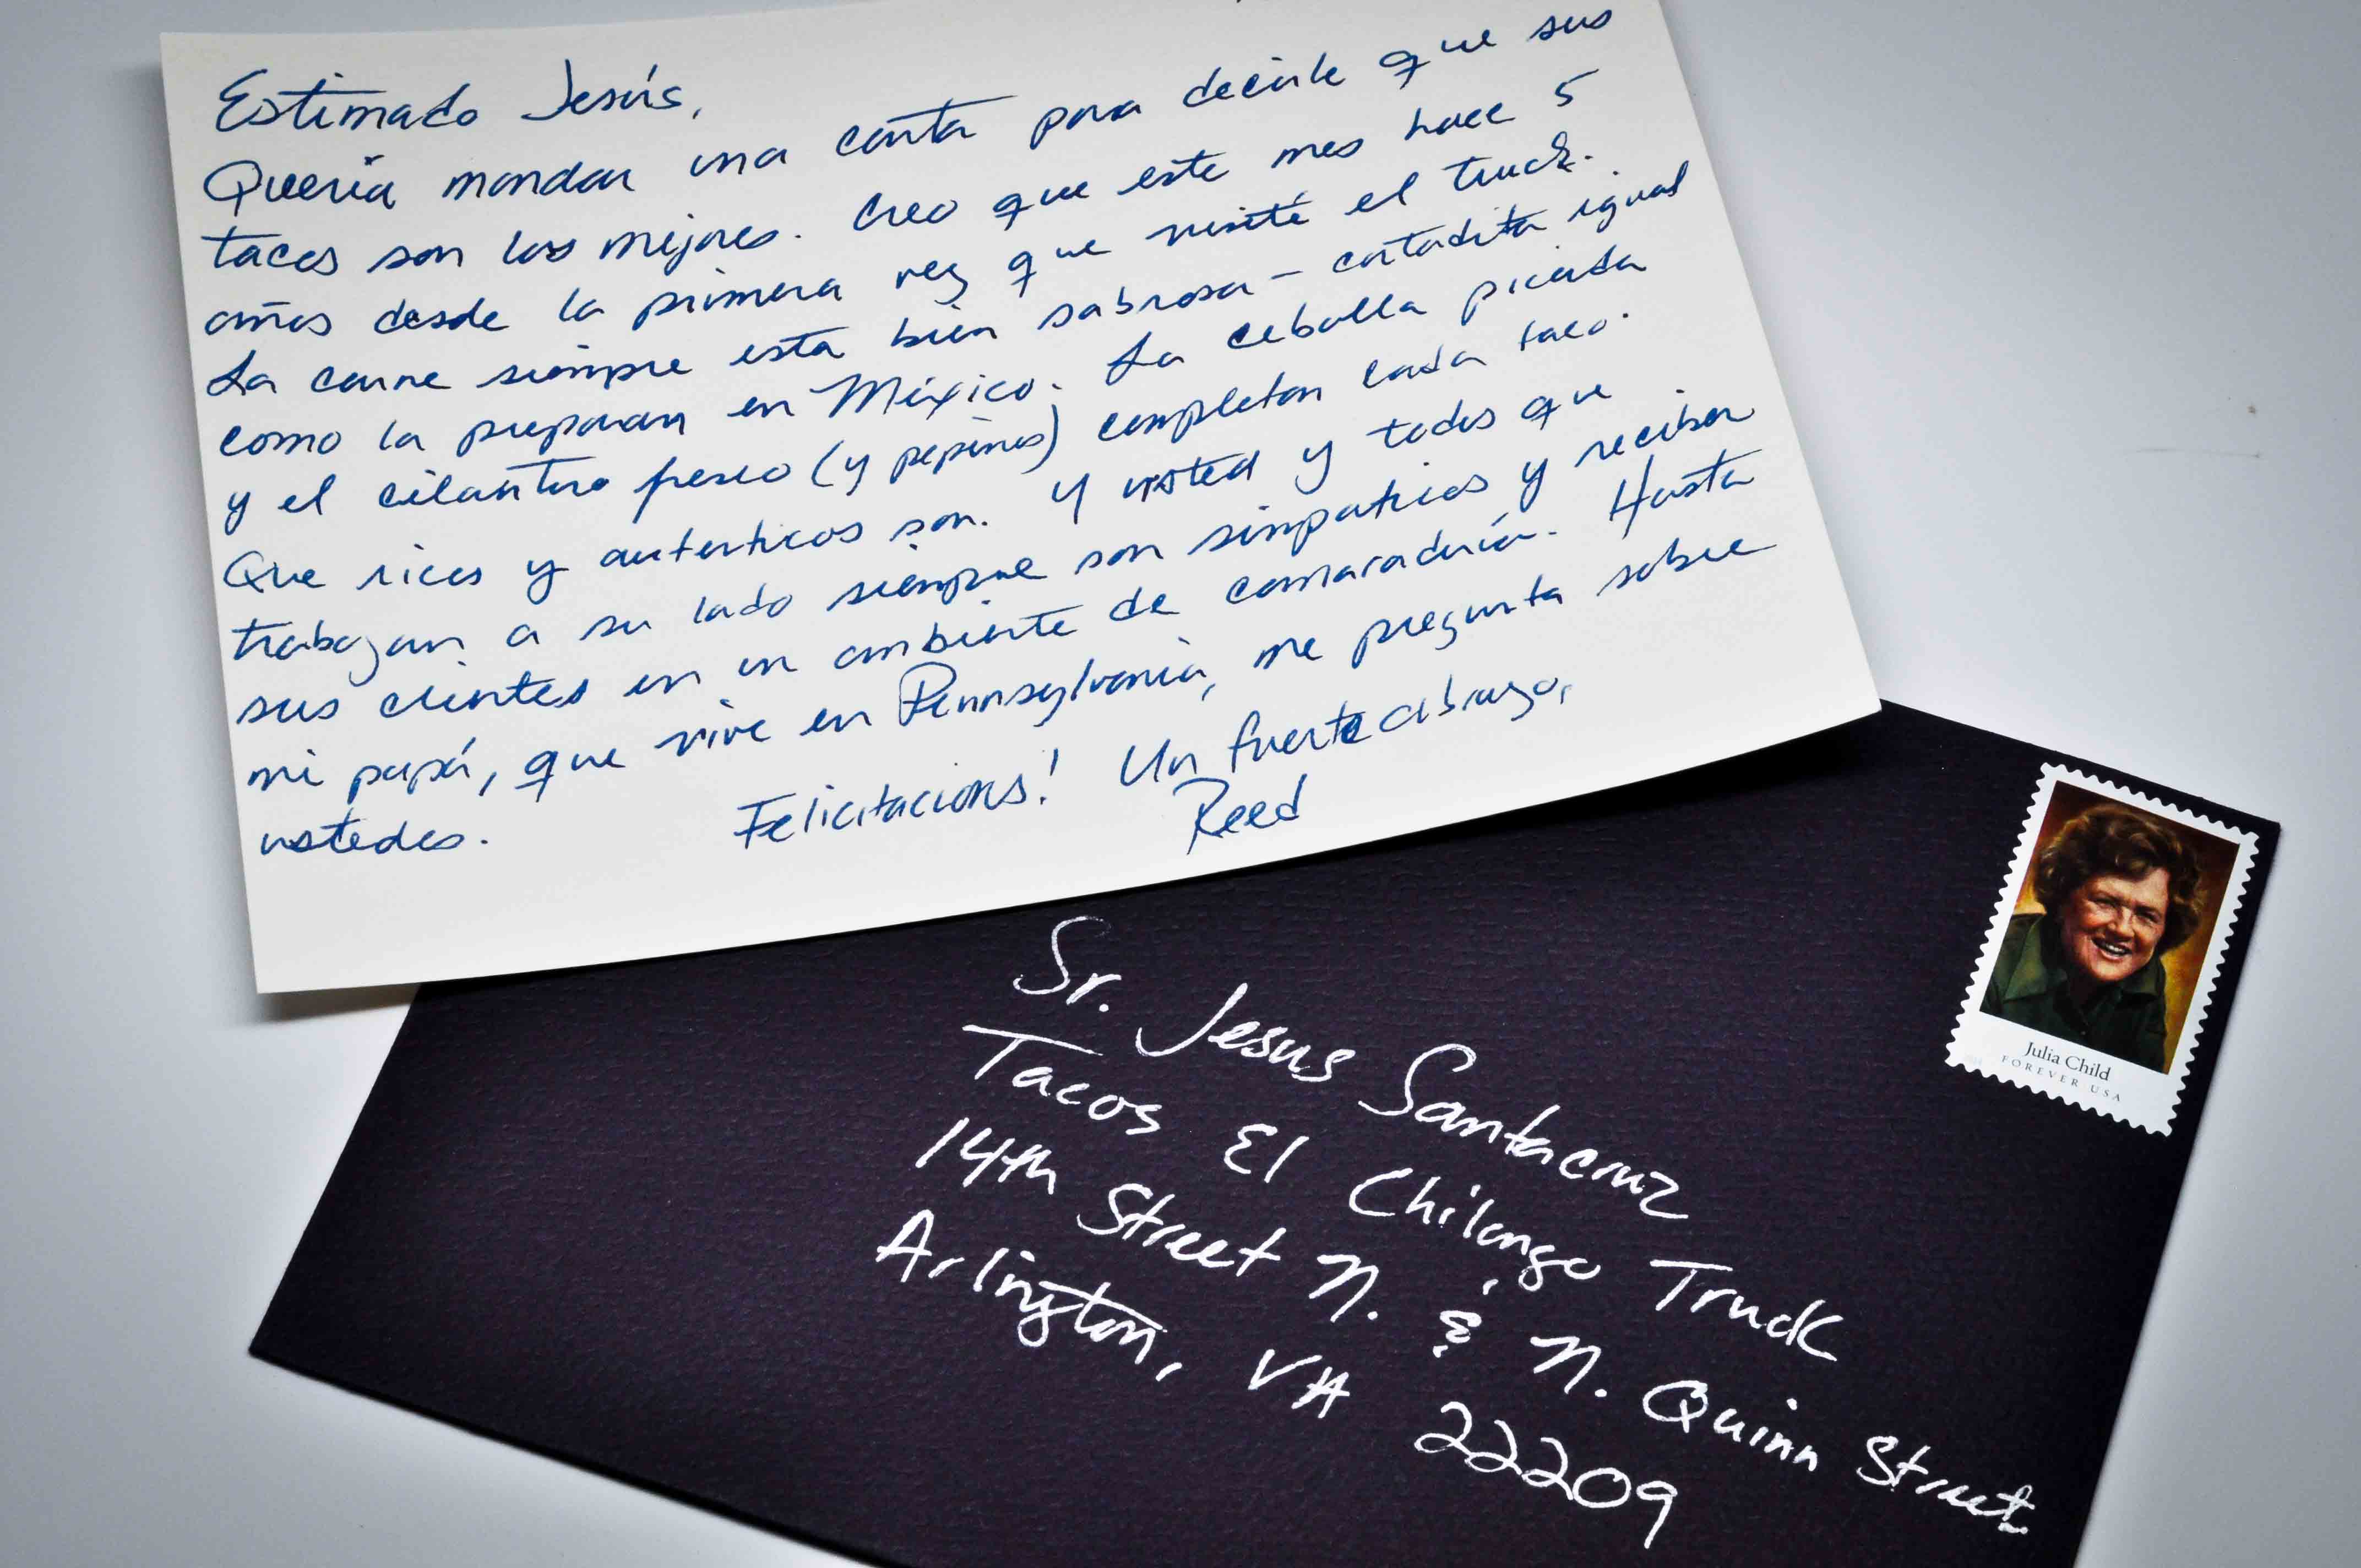 Estimado Jesús,
Quería mandar una carta para decirle que sus
tacos son los mejores. Creo que este mes hace 5
años desde la primera vez que visité el truck.
La carne siempre esta bien sabrosa - cortadita igual
como la preparan en México. La cebolla picada
y el cilantro fresco (y pepinos) completan cada taco.
Que ricos y autenticos son. Y usted y todos que
trabajan a su lado siempre son simpaticos y reciben
sus clientes en un ambiente de camaradería. Hasta
mi papá, que vive en Pennsylvania, me pregunta sobre
ustedes.
Felicitaciones! Un fuerte abrazo,
Reed
Sr. Jesus Santacruz
Tacos El Chilango Truck
14th Street N. & N. Quinn Street
Arlington, VA 22209
Julia Child
FOREVER USA